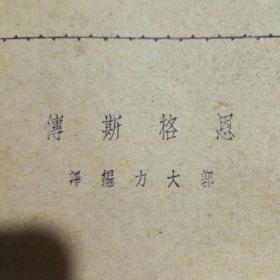 恩格斯傳
郭大力編譯